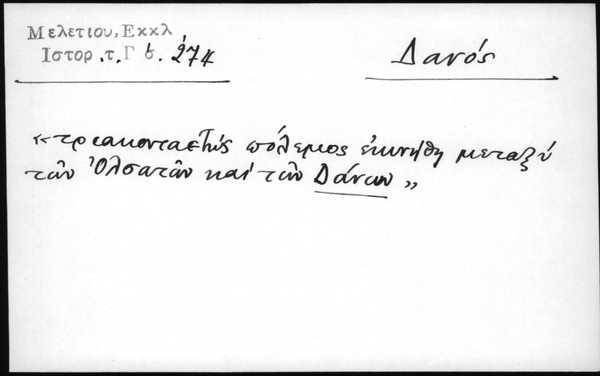 Μελετίου, Εκκλ
Ιστορ .τ. Γ σ. 274
Δανός
« τριακονταετὴς πόλεμος ἐκινήθη μεταξὺ
τῶν Ὁλσατῶν καὶ τῶν Δάνων »